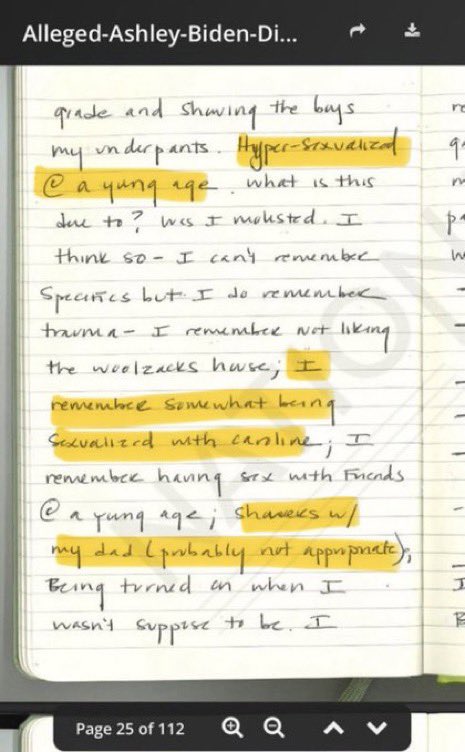 Alleged-Ashley-Biden-Di...
grade and showing the boys
my underpants. Hyper-sexualized
@ a yung age. what is this
due to? was I molested. I
think so - I can't remember
specifics but I do remember
trauma - I remember not liking
the woolzacks house; I
remember somewhat being
sexualized with caroline; I
remember having sex with Friends
@ a yung age; showers w/
my dad (probably not appropriate);
Being turned on when I
wasn't suppose to be. I
NATION
Page 25 of 112